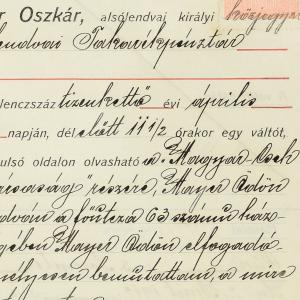 r Oszkár, alsólendvai királyi közjegyz
lendvai Takarékpénztár
lenczszáz tizenkettő évi április
napján, dél előtt 11 1/2 órakor egy váltót,
ulsó oldalon olvasható a "Magyar-Cseh
részére, Mayer Ödön
a főutcza 63 számú ház-
Mayer Ödön elfogadá-
bemutattam, a mire